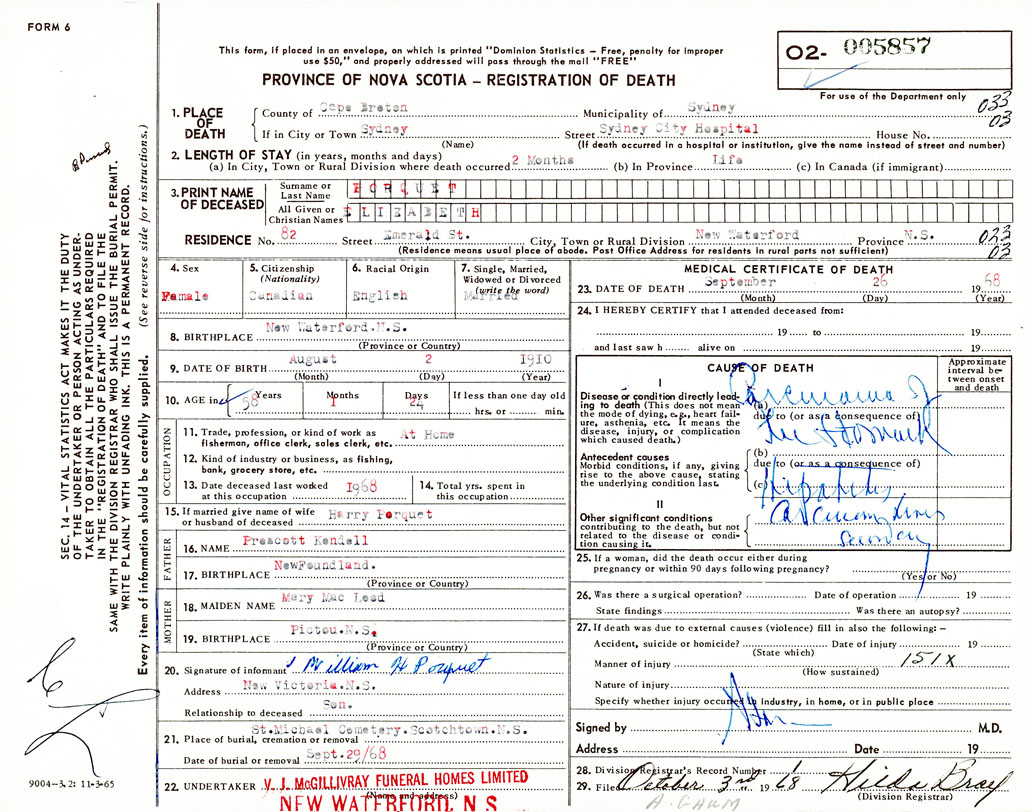 FORM 6
This form, if placed in an envelope, on which is printed "Dominion Statistics — Free, penalty for improper
use $50," and properly addressed will pass through the mail "FREE"
PROVINCE OF NOVA SCOTIA — REGISTRATION OF DEATH
O2- 005857
For use of the Department only
033
03
1. PLACE OF DEATH
County of Cape Breton Municipality of Sydney
If in City or Town Sydney Street Sydney City Hospital House No.
(Name) (If death occurred in a hospital or institution, give the name instead of street and number)
2. LENGTH OF STAY (in years, months and days)
(a) In City, Town or Rural Division where death occurred 2 Months (b) In Province Life (c) In Canada (if immigrant)
3. PRINT NAME OF DECEASED
Surname or Last Name PORQUET
All Given or Christian Names ELIZABETH
RESIDENCE No. 82 Street Emerald St. City, Town or Rural Division New Waterford Province N.S.
(Residence means usual place of abode. Post Office Address for residents in rural parts not sufficient)
033
03
4. Sex
Female
5. Citizenship
(Nationality)
Canadian
6. Racial Origin
English
7. Single, Married,
Widowed or Divorced
(write the word)
Married
8. BIRTHPLACE New Waterford.N.S.
(Province or Country)
9. DATE OF BIRTH August 2 1910
(Month) (Day) (Year)
10. AGE in 58 Years 1 Months 24 Days If less than one day old
hrs. or min.
OCCUPATION
11. Trade, profession, or kind of work as
fisherman, office clerk, sales clerk, etc. At Home
12. Kind of industry or business, as fishing,
bank, grocery store, etc.
13. Date deceased last worked
at this occupation 1968
14. Total yrs. spent in
this occupation
15. If married give name of wife
or husband of deceased Harry Porquet
FATHER
16. NAME Prescott Kendell
17. BIRTHPLACE NewFoundland.
(Province or Country)
MOTHER
18. MAIDEN NAME Mary Mac Leod
19. BIRTHPLACE Pictou.N.S.
(Province or Country)
20. Signature of informant William H Porquet
Address New Victoria.N.S.
Relationship to deceased Son.
21. Place of burial, cremation or removal St.Michael Cemetery.Scotchtown.N.S.
Date of burial or removal Sept.29/68
22. UNDERTAKER V. J. McGILLIVRAY FUNERAL HOMES LIMITED
(Name and address)
NEW WATERFORD, N S
MEDICAL CERTIFICATE OF DEATH
23. DATE OF DEATH September 26 1968
(Month) (Day) (Year)
24. I HEREBY CERTIFY that I attended deceased from:
19 to 19
and last saw h alive on 19
CAUSE OF DEATH
Approximate
interval be-
tween onset
and death
I
Disease or condition directly lead-
ing to death (This does not mean
the mode of dying, e.g., heart fail-
ure, asthenia, etc. It means the
disease, injury, or complication
which caused death.)
(a) Carcinoma of
due to (or as a consequence of)
the Stomach
Antecedent causes
Morbid conditions, if any, giving
rise to the above cause, stating
the underlying condition last.
(b)
due to (or as a consequence of)
(c)
II
Other significant conditions
contributing to the death, but not
related to the disease or condi-
tion causing it.
25. If a woman, did the death occur either during
pregnancy or within 90 days following pregnancy?
(Yes or No)
26. Was there a surgical operation? Date of operation 19
State findings Was there an autopsy?
27. If death was due to external causes (violence) fill in also the following: —
Accident, suicide or homicide? Date of injury 19
(State which)
Manner of injury 151X
(How sustained)
Nature of injury
Specify whether injury occurred in industry, in home, or in public place
Signed by M.D.
Address Date 19
28. Division Registrar's Record Number
29. Filed October 3rd 1968 Hilda Bray
(Division Registrar)
SEC. 14 — VITAL STATISTICS ACT MAKES IT THE DUTY
OF THE UNDERTAKER OR PERSON ACTING AS UNDER-
TAKER TO OBTAIN ALL THE PARTICULARS REQUIRED
IN THE "REGISTRATION OF DEATH" AND TO FILE THE
SAME WITH THE DIVISION REGISTRAR WHO SHALL ISSUE THE BURIAL PERMIT.
WRITE PLAINLY WITH UNFADING INK. THIS IS A PERMANENT RECORD.
Every item of information should be carefully supplied. (See reverse side for instructions.)
9004-3.2: 11-3-65